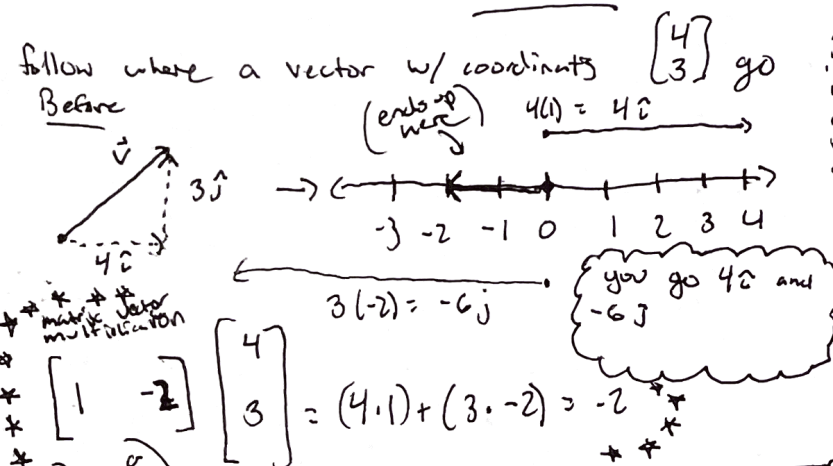 follow where a vector w/ coordinates [4 3] go
Before
(ends up here)
4(1) = 4î
v⃗
3ĵ
4î
-3 -2 -1 0 1 2 3 4
3(-2) = -6j
you go 4î and
-6j
matrix vector
multiplication
[1 -2] [4 3] = (4·1)+(3·-2) = -2